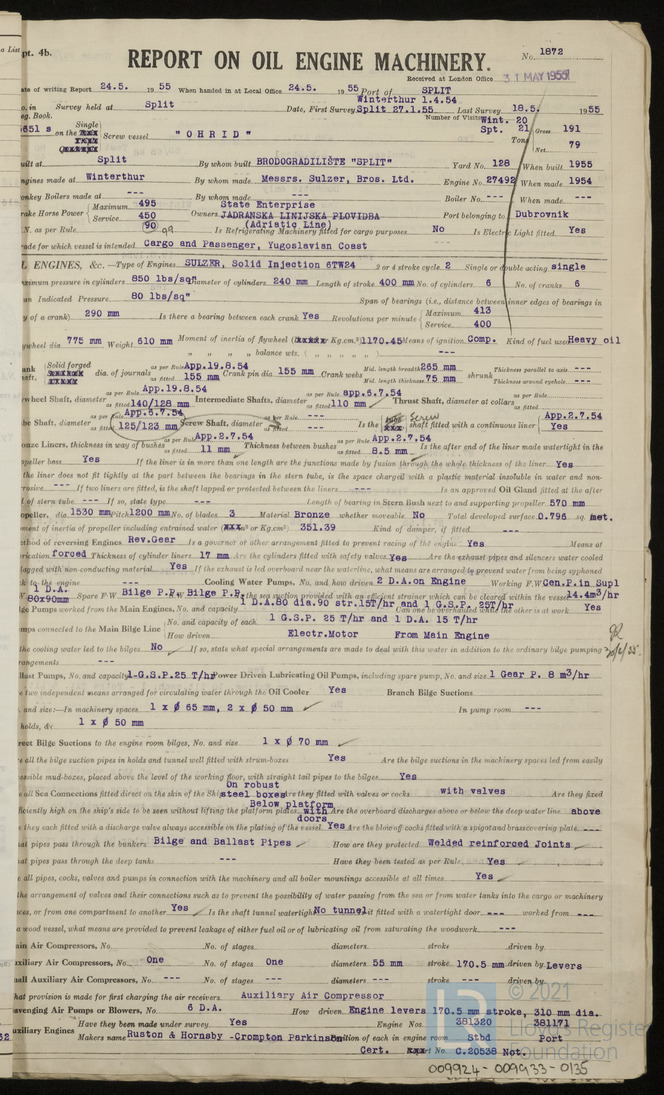 a List
pt. 4b.
REPORT ON OIL ENGINE MACHINERY.
No. 1872
Received at London Office 31 MAY 1955
ate of writing Report 24.5. 1955 When handed in at Local Office 24.5. 1955 Port of SPLIT
Winterthur 1.4.54
o. in Survey held at Split Date, First Survey Split 27.1.55 Last Survey 18.5. 1955
eg. Book. Number of Visits Wint. 20
Spt. 21
651 s on the Single Screw vessel "OHRID" Tons Gross 191
Net 79
uilt at Split By whom built BRODOGRADILIŠTE "SPLIT" Yard No. 128 When built 1955
ngines made at Winterthur By whom made Messrs. Sulzer, Bros. Ltd. Engine No. 27492 When made 1954
nkey Boilers made at --- By whom made --- Boiler No. --- When made ---
rake Horse Power Maximum 495 State Enterprise
Service 450 Owners JADRANSKA LINIJSKA PLOVIDBA Port belonging to Dubrovnik
(Adriatic Line)
.N. as per Rule 90 99 Is Refrigerating Machinery fitted for cargo purposes No Is Electric Light fitted Yes
rade for which vessel is intended Cargo and Passenger, Yugoslavian Coast
L ENGINES, &c.—Type of Engines SULZER, Solid Injection 6TW24 2 or 4 stroke cycle 2 Single or double acting single
aximum pressure in cylinders 850 lbs/sq" Diameter of cylinders 240 mm Length of stroke 400 mm No. of cylinders 6 No. of cranks 6
an Indicated Pressure 80 lbs/sq" Span of bearings (i.e., distance between inner edges of bearings in
y of a crank) 290 mm Is there a bearing between each crank Yes Revolutions per minute Maximum 413
Service 400
ywheel dia 775 mm Weight 610 mm Moment of inertia of flywheel ( Kg.cm²) 1170.45 Means of ignition Comp. Kind of fuel used Heavy oil
" " " balance wts. ( " " " ) ---
rank Solid forged dia. of journals as per Rule App.19.8.54 Crank pin dia 155 mm Crank webs Mid. length breadth 265 mm shrunk Thickness parallel to axis ---
haft, as fitted 155 mm Mid. length thickness 75 mm Thickness around eyehole ---
wheel Shaft, diameter as per Rule App.19.8.54 as fitted 140/128 mm Intermediate Shafts, diameter as per Rule app.6.7.54 as fitted 110 mm Thrust Shaft, diameter at collars as per Rule as fitted
be Shaft, diameter as per Rule App.6.7.54 as fitted 125/123 mm Screw Shaft, diameter as per Rule --- as fitted --- Is the screw shaft fitted with a continuous liner App.2.7.54 Yes
onze Liners, thickness in way of bushes as per Rule App.2.7.54 as fitted 11 mm Thickness between bushes as per Rule App.2.7.54 as fitted 8.5 mm Is the after end of the liner made watertight in the
peller boss Yes If the liner is in more than one length are the junctions made by fusion through the whole thickness of the liner Yes
the liner does not fit tightly at the part between the bearings in the stern tube, is the space charged with a plastic material insoluble in water and non-
rosive --- If two liners are fitted, is the shaft lapped or protected between the liners --- Is an approved Oil Gland fitted at the after
d of stern tube --- If so, state type --- Length of bearing in Stern Bush next to and supporting propeller 570 mm
opeller, dia. 1530 mm Pitch 1200 mm No. of blades 3 Material Bronze whether moveable No Total developed surface 0.796 sq. met.
ment of inertia of propeller including entrained water ( or Kg.cm²) 351.39 Kind of damper, if fitted ---
ethod of reversing Engines Rev.Gear Is a governor or other arrangement fitted to prevent racing of the engine Yes Means of
brication forced Thickness of cylinder liners 17 mm Are the cylinders fitted with safety valves Yes Are the exhaust pipes and silencers water cooled
lagged with non-conducting material Yes If the exhaust is led overboard near the waterline, what means are arranged to prevent water being syphoned
ck to the engine --- Cooling Water Pumps, No. and how driven 2 D.A. on Engine Working F.W. Cen.P.in Supl
1 D.A.
80x90mm Spare F.W. Bilge P.P. Bilge P.P. the sea suction provided with an efficient strainer which can be cleared within the vessel 14.4m³/hr
lge Pumps worked from the Main Engines, No. and capacity 1 D.A.80 dia.90 str.15T/hr and 1 G.S.P. 25T/hr Can one be overhauled while the other is at work Yes
mps connected to the Main Bilge Line No. and capacity of each 1 G.S.P. 25 T/hr and 1 D.A. 15 T/hr
How driven Electr.Motor From Main Engine
the cooling water led to the bilges No If so, state what special arrangements are made to deal with this water in addition to the ordinary bilge pumping
rangements ---
llast Pumps, No. and capacity 1-G.S.P.25 T/hr Power Driven Lubricating Oil Pumps, including spare pump, No. and size 1 Gear P. 8 m³/hr
e two independent means arranged for circulating water through the Oil Cooler Yes Branch Bilge Suctions
. and size:—In machinery spaces 1 x Ø 65 mm, 2 x Ø 50 mm In pump room ---
holds, &c 1 x Ø 50 mm
rect Bilge Suctions to the engine room bilges, No. and size 1 x Ø 70 mm
e all the bilge suction pipes in holds and tunnel well fitted with strum-boxes Yes Are the bilge suctions in the machinery spaces led from easily
essible mud-boxes, placed above the level of the working floor, with straight tail pipes to the bilges Yes
On robust
e all Sea Connections fitted direct on the skin of the Ship steel boxes Are they fitted with valves or cocks with valves Are they fixed
Below platform
ficiently high on the ship's side to be seen without lifting the platform plates with doors Are the overboard discharges above or below the deep water line above
e they each fitted with a discharge valve always accessible on the plating of the vessel Yes Are the blow off cocks fitted with a spigot and brass covering plate ---
at pipes pass through the bunkers Bilge and Ballast Pipes How are they protected Welded reinforced Joints
at pipes pass through the deep tanks --- Have they been tested as per Rule Yes
e all pipes, cocks, valves and pumps in connection with the machinery and all boiler mountings accessible at all times Yes
the arrangement of valves and their connections such as to prevent the possibility of water passing from the sea or from water tanks into the cargo or machinery
ces, or from one compartment to another Yes Is the shaft tunnel watertight No tunnel it fitted with a watertight door --- worked from ---
a wood vessel, what means are provided to prevent leakage of either fuel oil or of lubricating oil from saturating the woodwork ---
ain Air Compressors, No. No. of stages diameters stroke driven by
uxiliary Air Compressors, No. One No. of stages One diameters 55 mm stroke 170.5 mm driven by Levers
mall Auxiliary Air Compressors, No. --- No. of stages --- diameters --- stroke --- driven by
hat provision is made for first charging the air receivers Auxiliary Air Compressor
avenging Air Pumps or Blowers, No. 6 D.A. How driven Engine levers 170.5 mm stroke, 310 mm dia.
uxiliary Engines Have they been made under survey Yes Engine Nos. 381320 381171
Makers name Ruston & Hornsby -Crompton Parkinson Position of each in engine room Stbd Port
Cert. No. C.20538 Not.
© 2021
Lloyd's Register
Foundation
009924-009933-0135